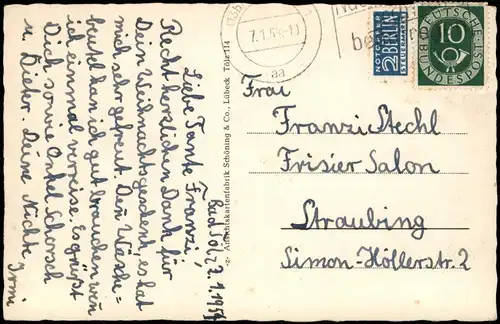 Bad Tölz, 2.1.1954
Liebe Tante Franzi,
Recht herzlichen Dank für
Dein Weihnachtsgeschenk, es hat
mich sehr gefreut. Den Wäsche=
beutel kan ich gut brauchen wen
ich einmal verreise. Es grüßt
Dich sowie Onkel Schorsch
u. Dieter. Deine Nichte
Irmi
Ansichtskartenfabrik Schöning & Co., Lübeck Tölz 114
7.1.54-10
aa
NOTOPFER
2 BERLIN
STEUERMARKE
DEUTSCHE
BUNDESPOST
10
Frau
Franzi Stechl
Frisier Salon
Straubing
Simon-Höllerstr. 2